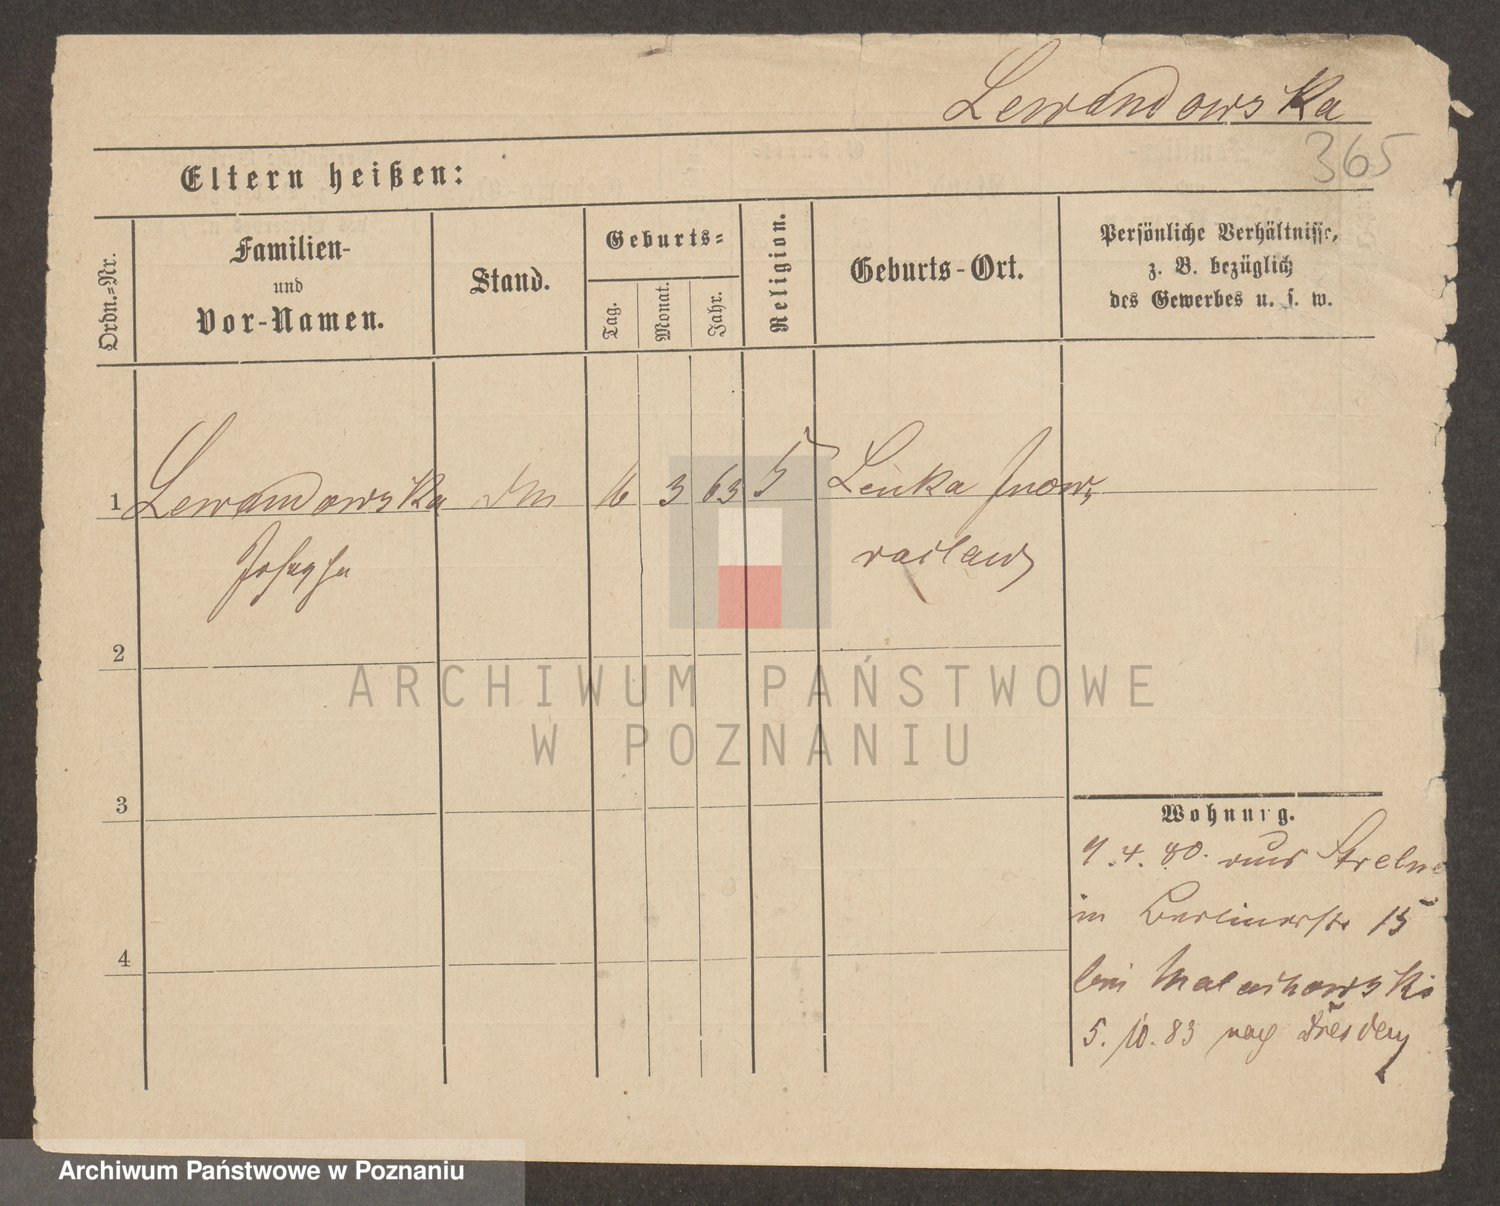 Lewandowska
365
Eltern heißen:
Ordn.=Nr.
Familien-
und
Vor-Namen.
Stand.
Geburts=
Tag.
Monat.
Jahr.
Religion.
Geburts-Ort.
Persönliche Verhältnisse,
z. B. bezüglich
des Gewerbes u. s. w.
1 Lewandowska 16 3 63 Inow,
Josepha raclaw
2
ARCHIWUM PAŃSTWOWE
W POZNANIU
3
Wohnung.
9.4.80. aus Strelno
in Berlinerstr 15
4
bei Malachowski
5.10.83 nach Dresden
Archiwum Państwowe w Poznaniu